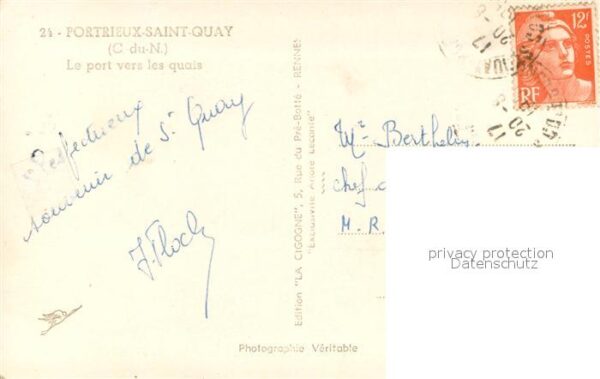 24 - PORTRIEUX-SAINT-QUAY
(C-du-N.)
Le port vers les quais
Respectueux
souvenir de St Quay
J. Floch
Edition "LA CIGOGNE", 5, Rue du Pré-Botté - RENNES
"Exclusivité André Lecomte"
Photographie Véritable
12F
POSTES
RF
17
20 -8
17
20 -8
Mr Berthelo
chef
M. R.
privacy protection
Datenschutz